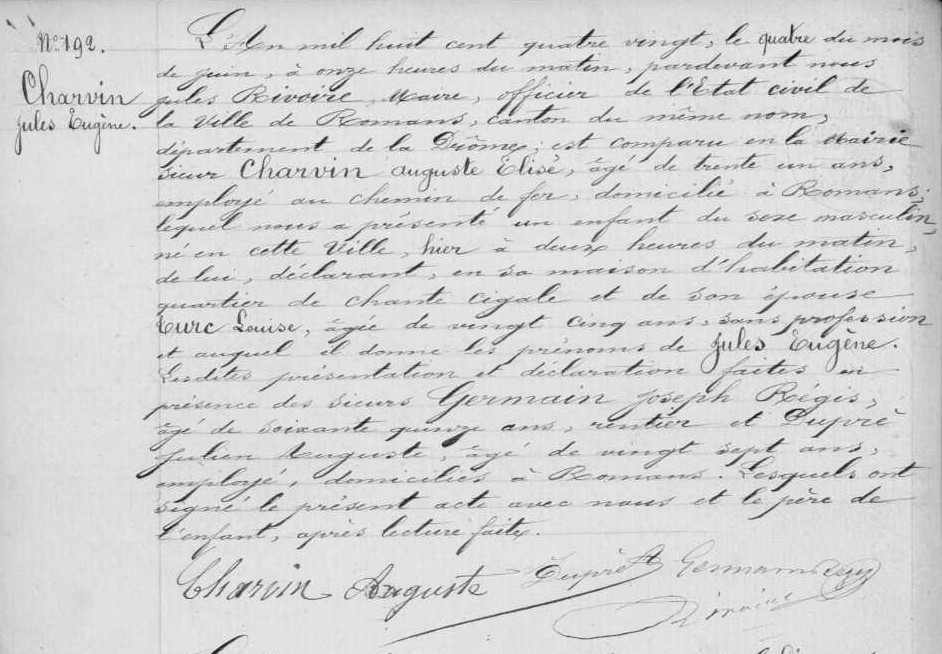 N° 192.
Charvin
Jules Eugène.
L'An mil huit cent quatre vingt, le quatre du mois
de juin, à onze heures du matin, pardevant nous
Jules Rivoire, Maire, officier de l'Etat civil de
la Ville de Romans, canton du même nom,
département de la Drôme; est comparu en la Mairie
sieur Charvin auguste Elisé, âgé de trente un ans,
employé au chemin de fer, domicilié à Romans;
lequel nous a présenté un enfant du sexe masculin,
né en cette Ville, hier à deux heures du matin,
de lui, déclarant, en sa maison d'habitation
quartier de chante cigale et de son épouse
Turc Louise, âgée de vingt cinq ans, sans profession
et auquel il donne les prénoms de Jules Eugène.
Lesdites présentation et déclaration faites en
présence des sieurs Germain Joseph Régis,
âgé de soixante quinze ans, rentier et Dupré
Julien Auguste, âgé de vingt sept ans,
employé, domiciliés à Romans. Lesquels ont
signé le présent acte avec nous et le père de
l'enfant, après lecture faite.
Charvin Auguste Dupré A Germain Regis
Rivoire